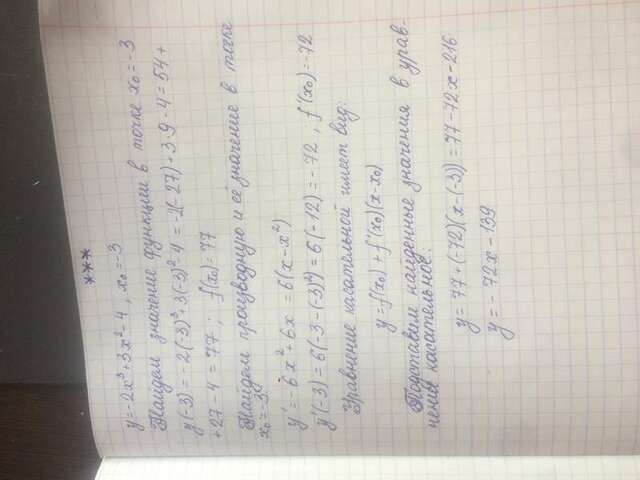 ***
y=-2x³+3x²-4, x₀=-3
Найдем значение функции в точке x₀=-3
y(-3)=-2(-3)³+3(-3)²-4=-2(-27)+3·9-4=54+
+27-4=77; f(x₀)=77
Найдем производную и её значение в точке
x₀=-3.
y'=-6x²+6x=6(x-x²)
y'(-3)=6(-3-(-3)²)=6(-12)=-72, f'(x₀)=-72
Уравнение касательной имеет вид:
y=f(x₀)+f'(x₀)(x-x₀)
Подставим найденные значения в урав-
нение касательное:
y=77+(-72)(x-(-3))=77-72x-216
y=-72x-139